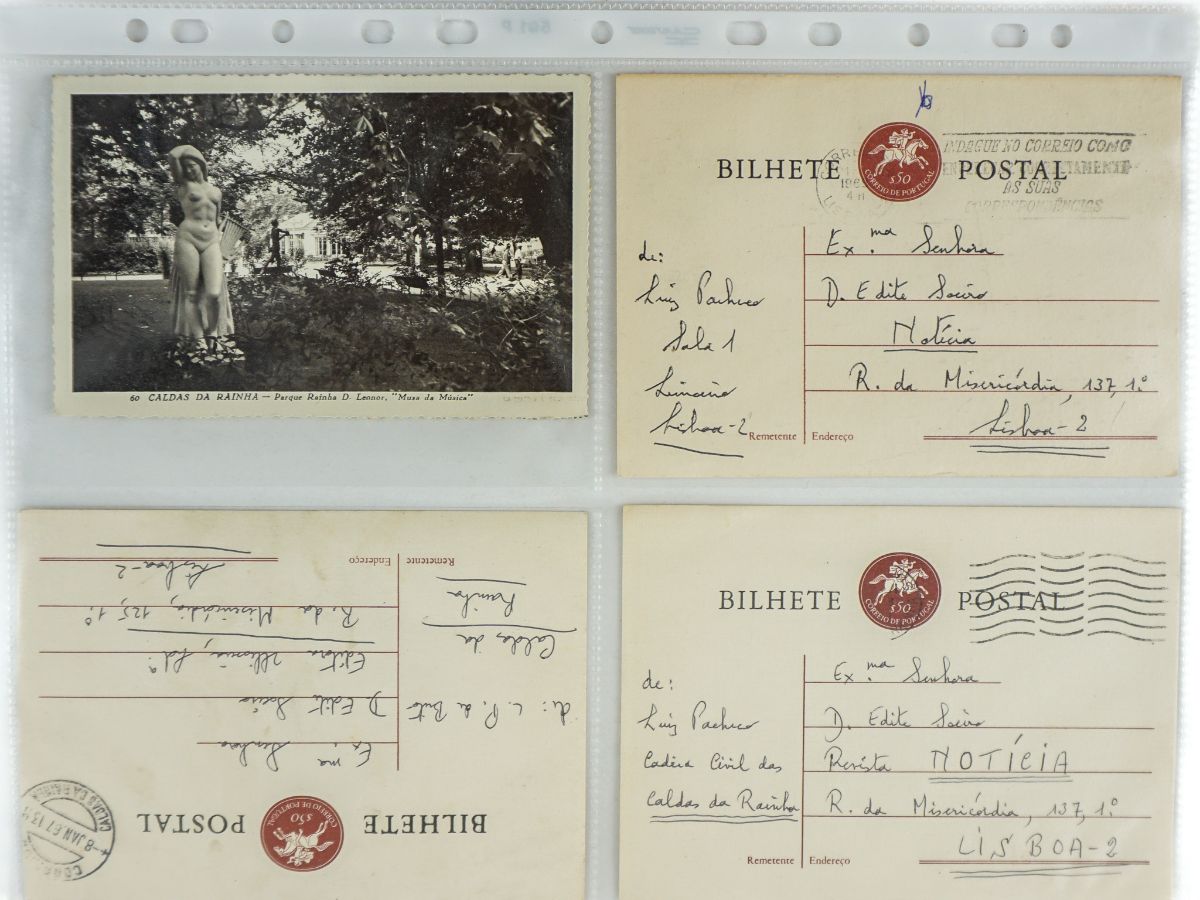 60 CALDAS DA RAINHA — Parque Rainha D. Leonor, "Musa da Música"
BILHETE POSTAL
$50
CORREIO DE PORTUGAL
INDIQUE NO CORREIO COMO
AS SUAS
CORRESPONDÊNCIAS
de:
Luiz Pacheco
Sala 1
Lisboa-2
Remetente
Ex.ma Senhora
D. Edite Soeiro
Notícia
R. da Misericórdia, 137, 1.º
Lisboa-2
Endereço
BILHETE POSTAL
$50
CORREIO DE PORTUGAL
8 JAN. 67
CALDAS DA RAINHA
de: L. P. de Brito
Caldas da
Rainha
Remetente
Ex.ma Senhora
D. Edite Soeiro
Editora Ulisseia, Ld.ª
R. da Misericórdia, 125, 1.º
Lisboa-2
Endereço
BILHETE POSTAL
$50
CORREIO DE PORTUGAL
de:
Luiz Pacheco
Cadeia Civil das
Caldas da Rainha
Remetente
Ex.ma Senhora
D. Edite Soeiro
Revista NOTÍCIA
R. da Misericórdia, 137, 1.º
LISBOA-2
Endereço